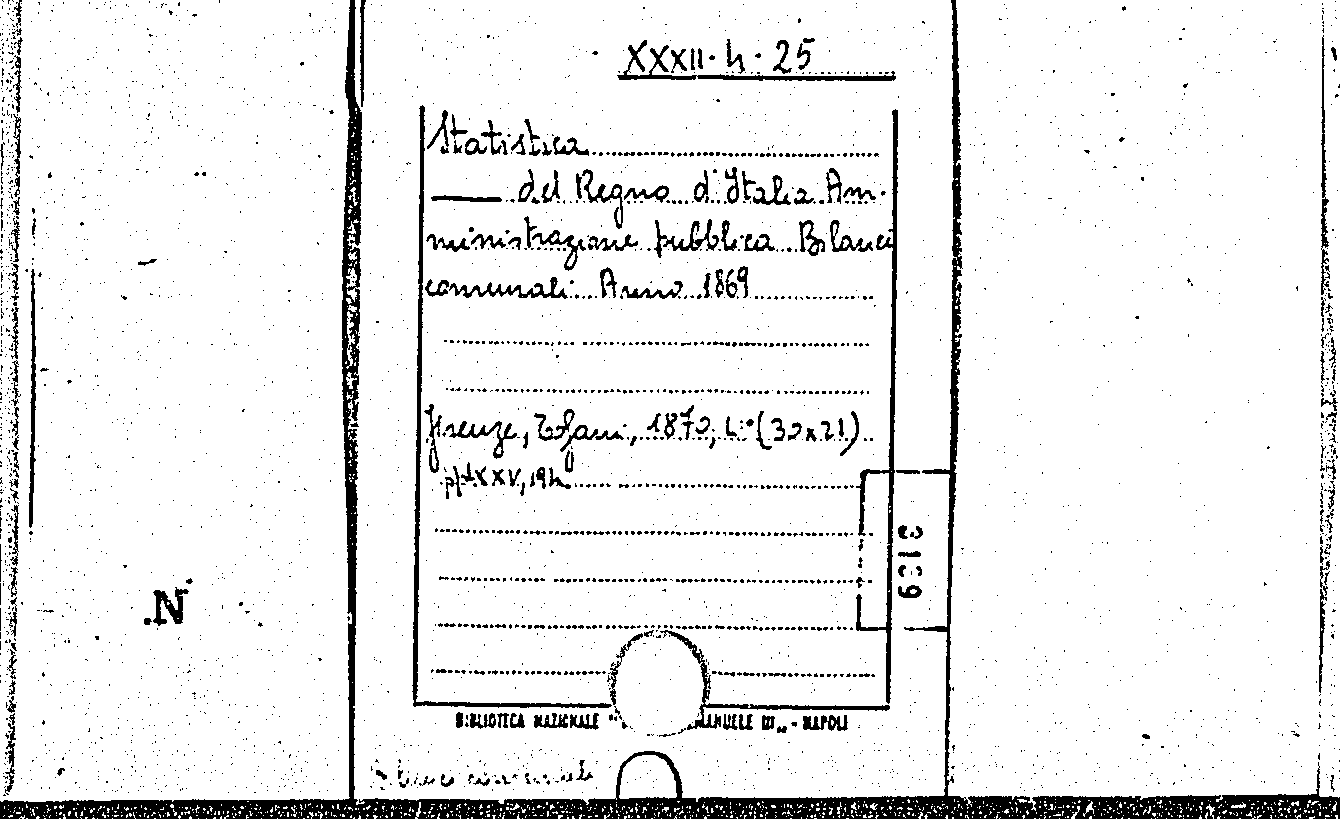 XXXII. h. 25
Statistica
—— del Regno d'Italia Am-
ministrazione pubblica Bilanci
comunali Anno 1869
Firenze, Tofani, 1870, 4.° (30x21)
pp. XXV, 194
3139
.N
BIBLIOTECA NAZIONALE " ANUELE III„ - NAPOLI